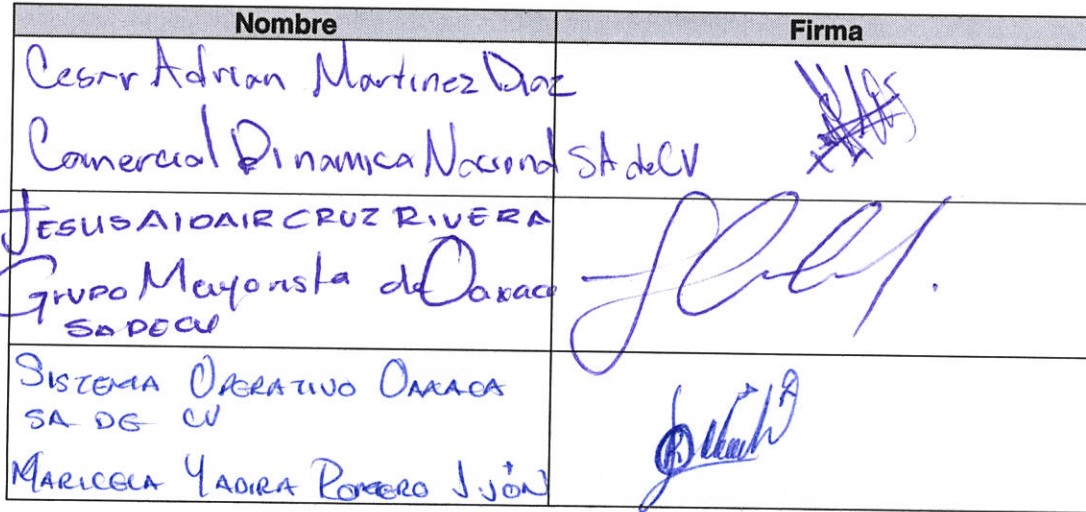 Nombre Firma
Cesar Adrian Martinez Diaz
Comercial Dinamica Nacional SA de CV
JESUS AIDAIR CRUZ RIVERA
Grupo Mayorista de Oaxaca
SA DE CV
SISTEMA OPERATIVO OAXACA
SA DE CV
MARICELA YADIRA ROMERO JIJÓN